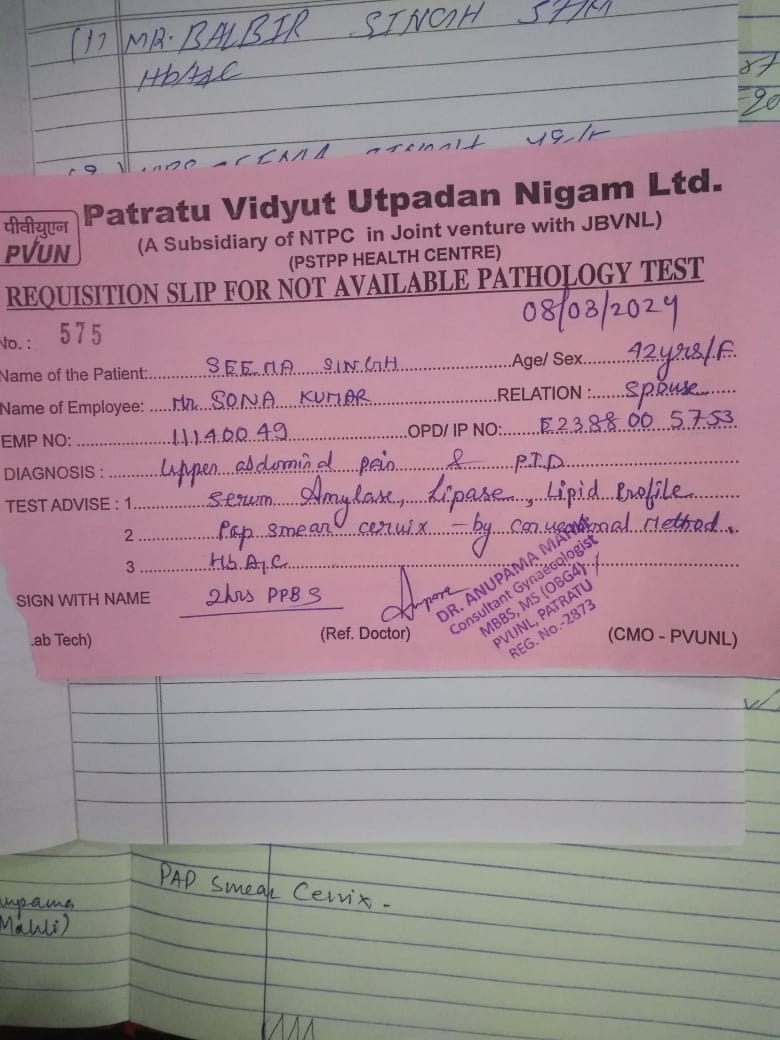 (1) MR. BALBIR SINGH 57/M
HbA1C
पीवीयुएन
PVUN
Patratu Vidyut Utpadan Nigam Ltd.
(A Subsidiary of NTPC in Joint venture with JBVNL)
(PSTPP HEALTH CENTRE)
REQUISITION SLIP FOR NOT AVAILABLE PATHOLOGY TEST
08/03/2024
No. : 575
Name of the Patient: SEEMA SINGH Age/ Sex 42yrs/F
Name of Employee: Mr SONA KUMAR RELATION : Spouse
EMP NO: 11140049 OPD/ IP NO: E2388 00 5753
DIAGNOSIS : Upper abdominal pain & PID
TEST ADVISE : 1 Serum Amylase, Lipase, Lipid Profile
2 Pap smear cervix - by Conventional Method.
3 HbA1C
SIGN WITH NAME 2hrs PPBS
DR. ANUPAMA
Consultant Gynaecologist
MBBS, MS (OBG4)
PVUNL, PATRATU
REG. No.-2873
ab Tech) (Ref. Doctor) (CMO - PVUNL)
PAP Smear Cervix -
nupama
Mahli)